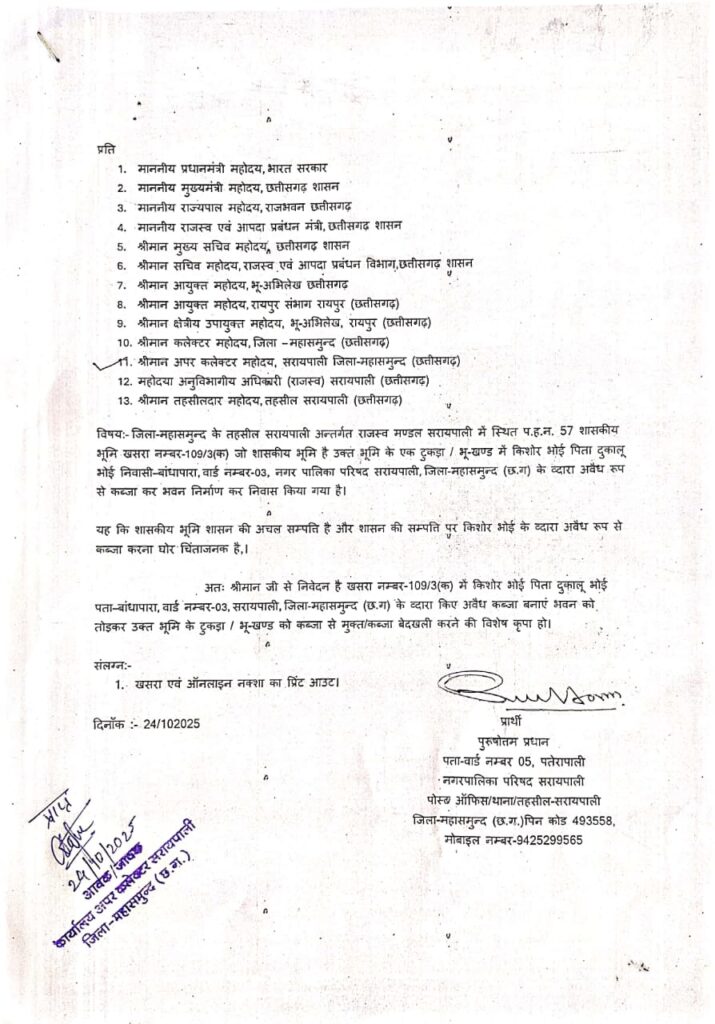 प्रति
1. माननीय प्रधानमंत्री महोदय, भारत सरकार
2. माननीय मुख्यमंत्री महोदय, छत्तीसगढ़ शासन
3. माननीय राज्यपाल महोदय, राजभवन छत्तीसगढ़
4. माननीय राजस्व एवं आपदा प्रबंधन मंत्री, छत्तीसगढ़ शासन
5. श्रीमान मुख्य सचिव महोदय, छत्तीसगढ़ शासन
6. श्रीमान सचिव महोदय, राजस्व एवं आपदा प्रबंधन विभाग,छत्तीसगढ़ शासन
7. श्रीमान आयुक्त महोदय, भू-अभिलेख छत्तीसगढ़
8. श्रीमान आयुक्त महोदय, रायपुर संभाग रायपुर (छत्तीसगढ़)
9. श्रीमान क्षेत्रीय उपायुक्त महोदय, भू-अभिलेख, रायपुर (छत्तीसगढ़)
10. श्रीमान कलेक्टर महोदय, जिला –महासमुन्द (छत्तीसगढ़)
11. श्रीमान अपर कलेक्टर महोदय, सरायपाली जिला-महासमुन्द (छत्तीसगढ़)
12. महोदया अनुविभागीय अधिकारी (राजस्व) सरायपाली (छत्तीसगढ़)
13. श्रीमान तहसीलदार महोदय, तहसील सरायपाली (छत्तीसगढ़)
विषय:- जिला-महासमुन्द के तहसील सरायपाली अन्तर्गत राजस्व मण्डल सरायपाली में स्थित प.ह.न. 57 शासकीय
भूमि खसरा नम्बर-109/3(क) जो शासकीय भूमि है उक्त भूमि के एक टुकड़ा / भू-खण्ड में किशोर भोई पिता दुकालू
भोई निवासी-बांधापारा, वार्ड नम्बर-03, नगर पालिका परिषद सरायपाली, जिला-महासमुन्द (छ.ग) के व्दारा अवैध रूप
से कब्जा कर भवन निर्माण कर निवास किया गया है।
यह कि शासकीय भूमि शासन की अचल सम्पत्ति है और शासन की सम्पति पर किशोर भोई के व्दारा अवैध रूप से
कब्जा करना घोर चिंताजनक है,।
अतः श्रीमान जी से निवेदन है खसरा नम्बर-109/3(क) में किशोर भोई पिता दुकालू भोई
पता–बांधापारा, वार्ड नम्बर-03, सरायपाली, जिला-महासमुन्द (छ.ग) के व्दारा किए अवैध कब्जा बनाएं भवन को
तोड़कर उक्त भूमि के टुकड़ा / भू-खण्ड को कब्जा से मुक्त/कब्जा बेदखली करने की विशेष कृपा हो।
संलग्न:-
1. खसरा एवं ऑनलाइन नक्शा का प्रिंट आउट।
दिनाँक :- 24/102025
प्रार्थी
पुरूषोतम प्रधान
पता-वार्ड नम्बर 05, पतेरापाली
नगरपालिका परिषद सरायपाली
पोस्ट ऑफिस/थाना/तहसील-सरायपाली
जिला-महासमुन्द (छ.ग.)पिन कोड 493558,
मोबाइल नम्बर-9425299565
24/10/2025
आवक/जावक
कार्यालय अपर कलेक्टर सरायपाली
जिला-महासमुन्द (छ.ग.)